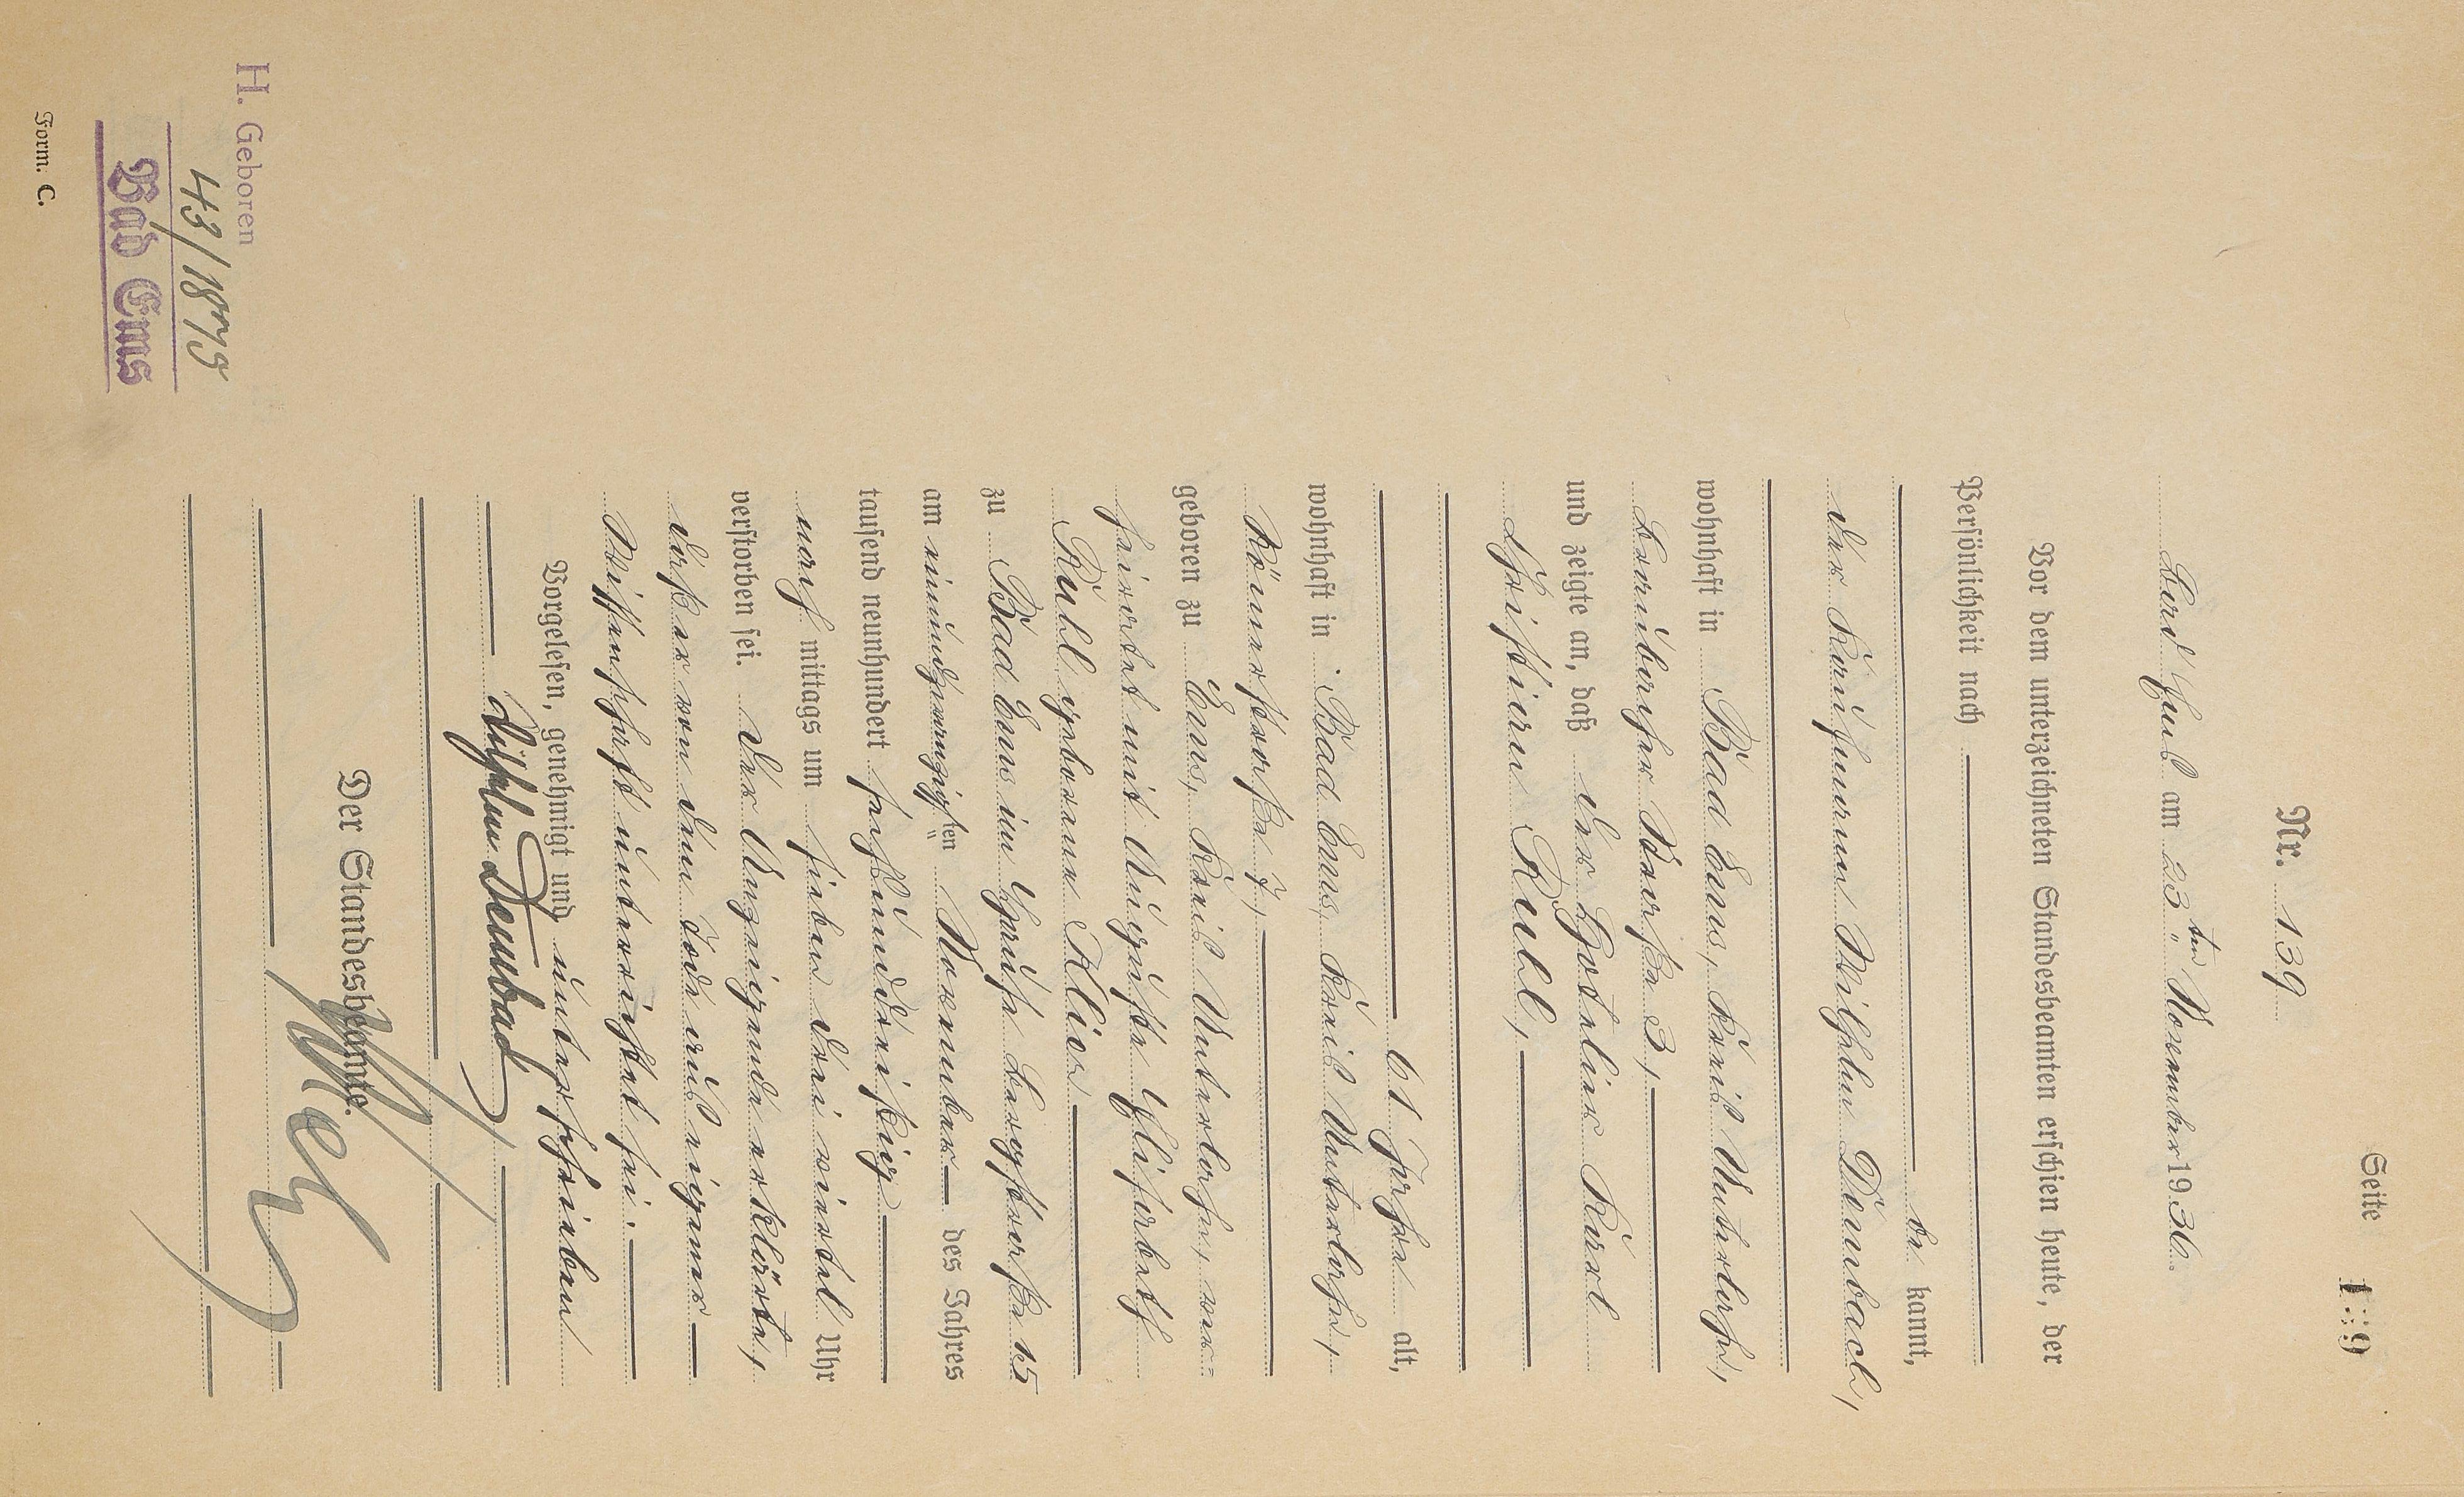 Seite 139
Nr. 139
Bad Ems am 23ten November 1936.
Vor dem unterzeichneten Standesbeamten erschien heute, der
Persönlichkeit nach
be kannt,
der Kaufmann Wilhelm Dombach,
wohnhaft in Bad Ems, Kreis Unterlahn,
Braubacher Straße 3,
und zeigte an, daß der Hotelier Karl
Christian Rubl,
61 Jahre alt,
wohnhaft in Bad Ems, Kreis Unterlahn,
Römerstraße 7,
geboren zu Ems, Kreis Unterlahn, ver=
heiratet mit Auguste Elisabeth
Rubl geborene Klior
zu Bad Ems im Hause Bergstraße 15
am einundzwanzigsten November des Jahres
tausend neunhundert sechsunddreißig
nach mittags um sieben drei viertel Uhr
verstorben sei. Der Anzeigende erklärte,
daß er von dem Tode aus eigener
Wissenschaft unterrichtet sei.
Vorgelesen, genehmigt und unterschrieben
Wilhelm Dombach
Der Standesbeamte.
H. Geboren
43/1875
Bad Ems
Form. C.